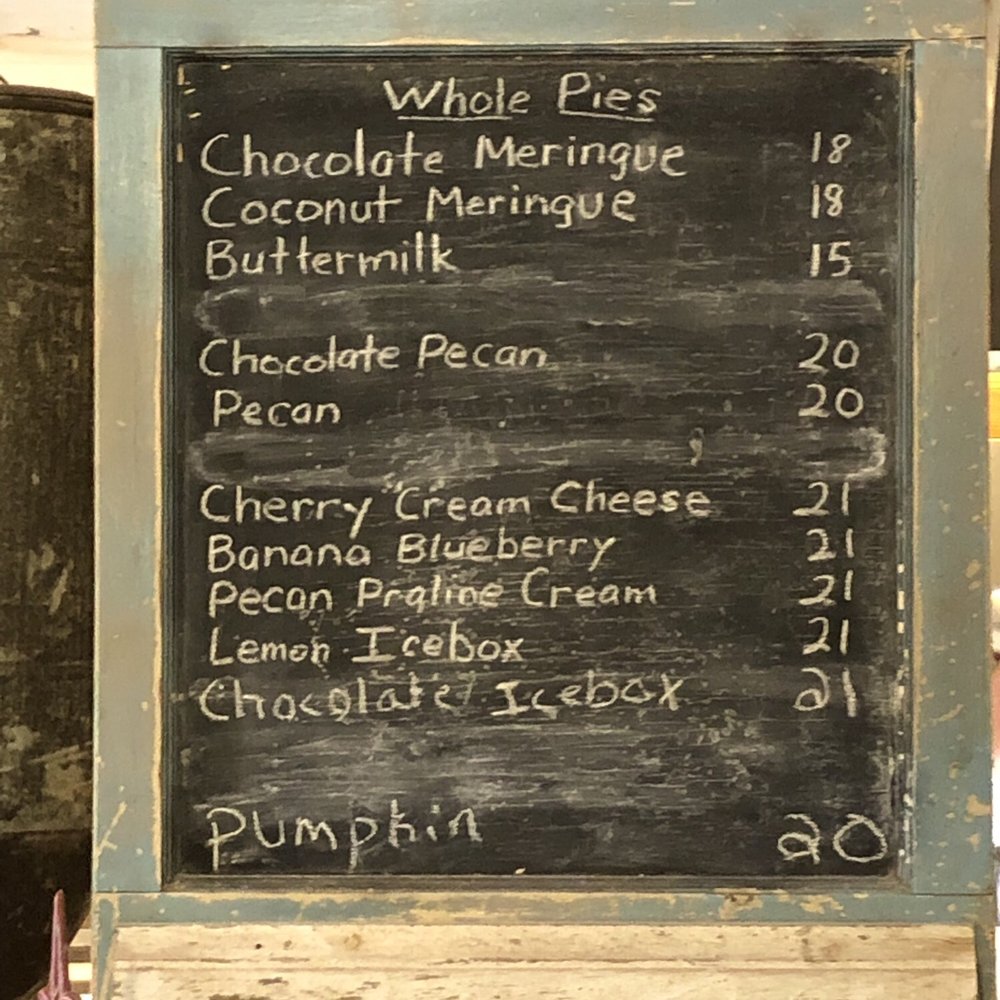 Whole Pies
Chocolate Meringue 18
Coconut Meringue 18
Buttermilk 15
Chocolate Pecan 20
Pecan 20
Cherry Cream Cheese 21
Banana Blueberry 21
Pecan Praline Cream 21
Lemon Icebox 21
Chocolate Icebox 21
Pumphin 20